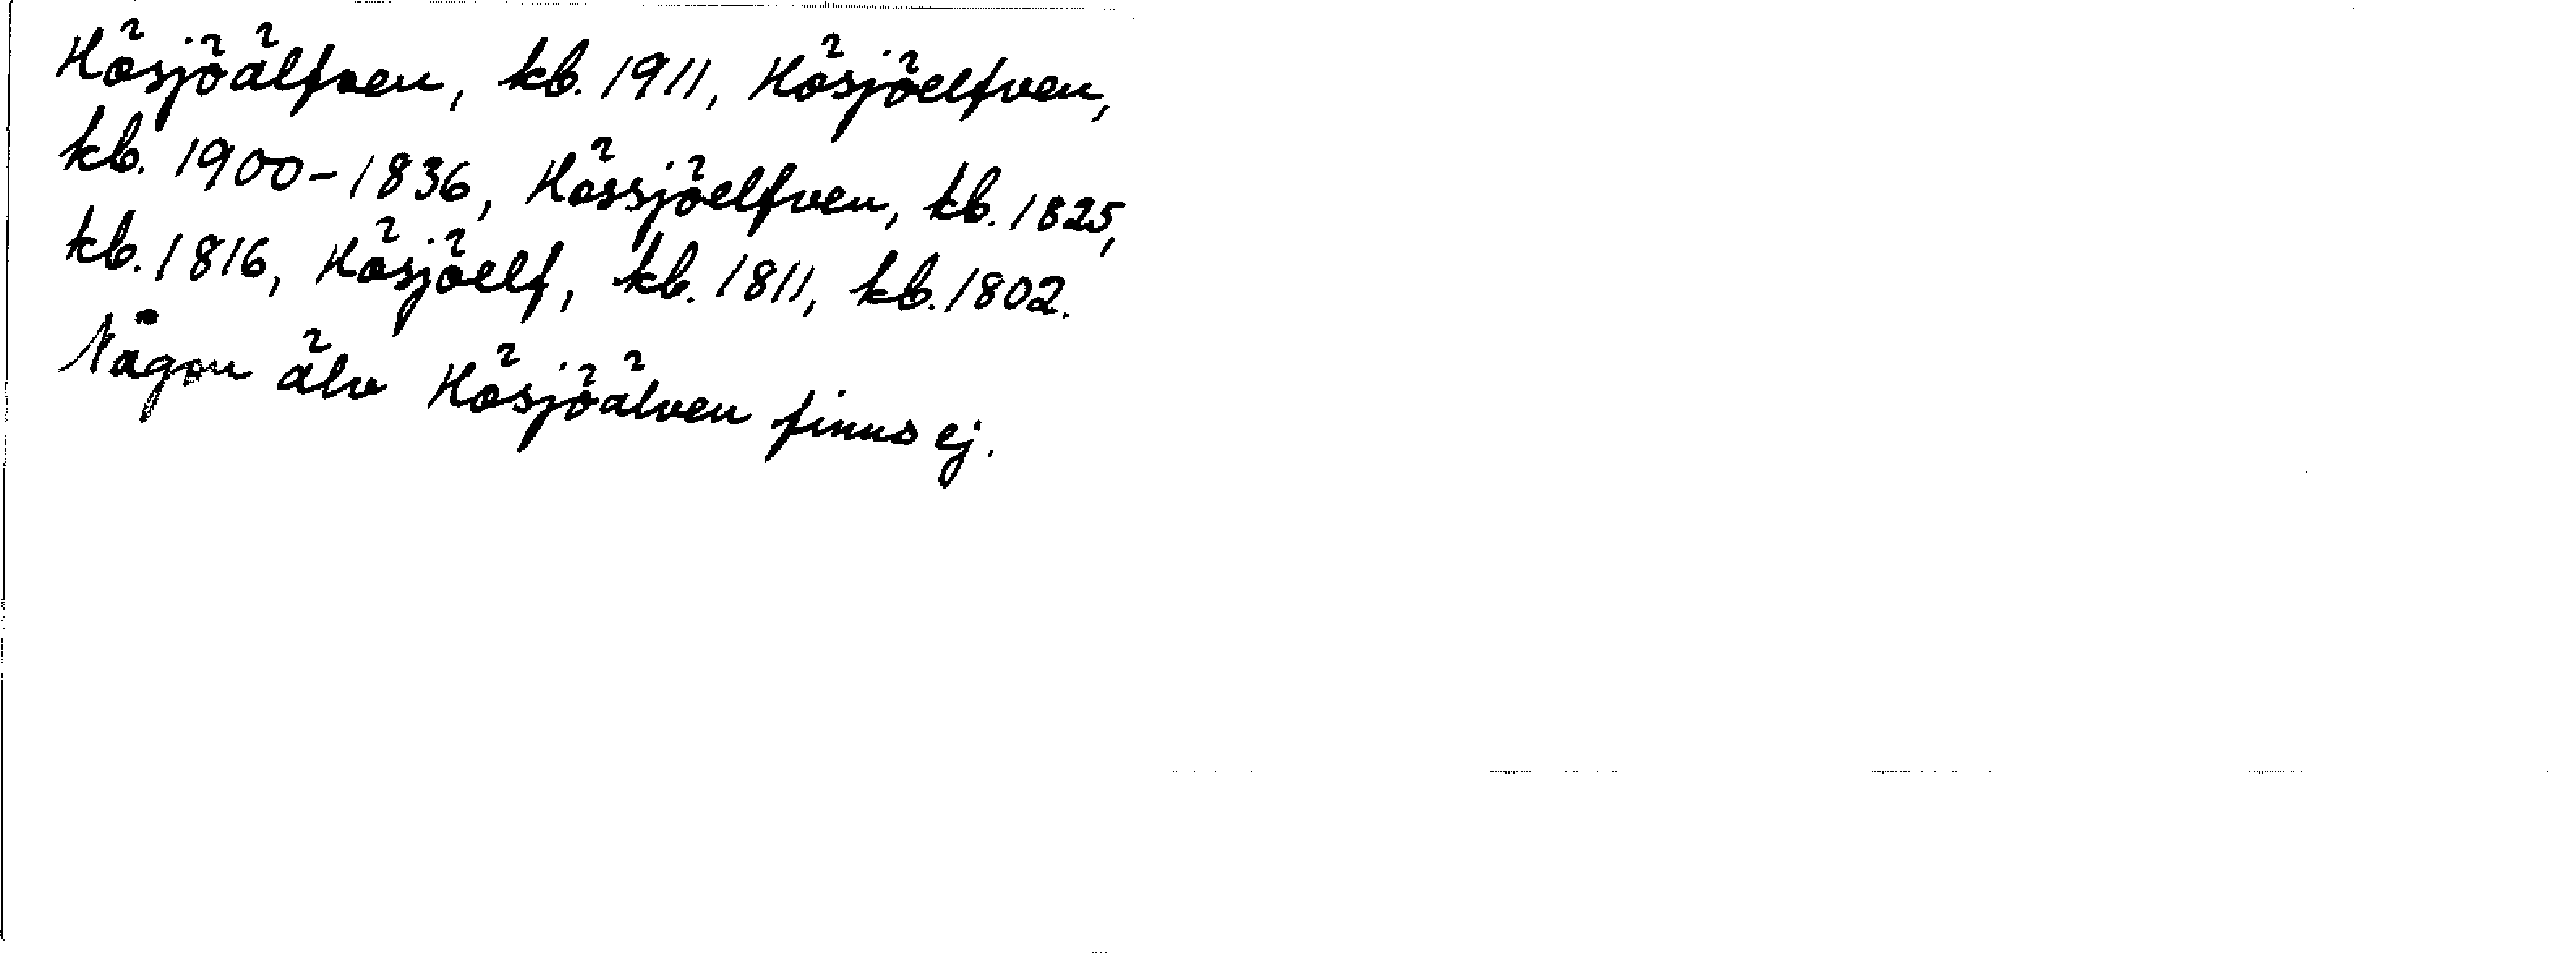 Hösjöälfven, kb. 1911, Hösjöelfven,
kb. 1900-1836, Hössjöelfven, kb. 1825,
kb. 1816, Hösjöelf, kb. 1811, kb. 1802.
Någon älv Hösjöälven finns ej.